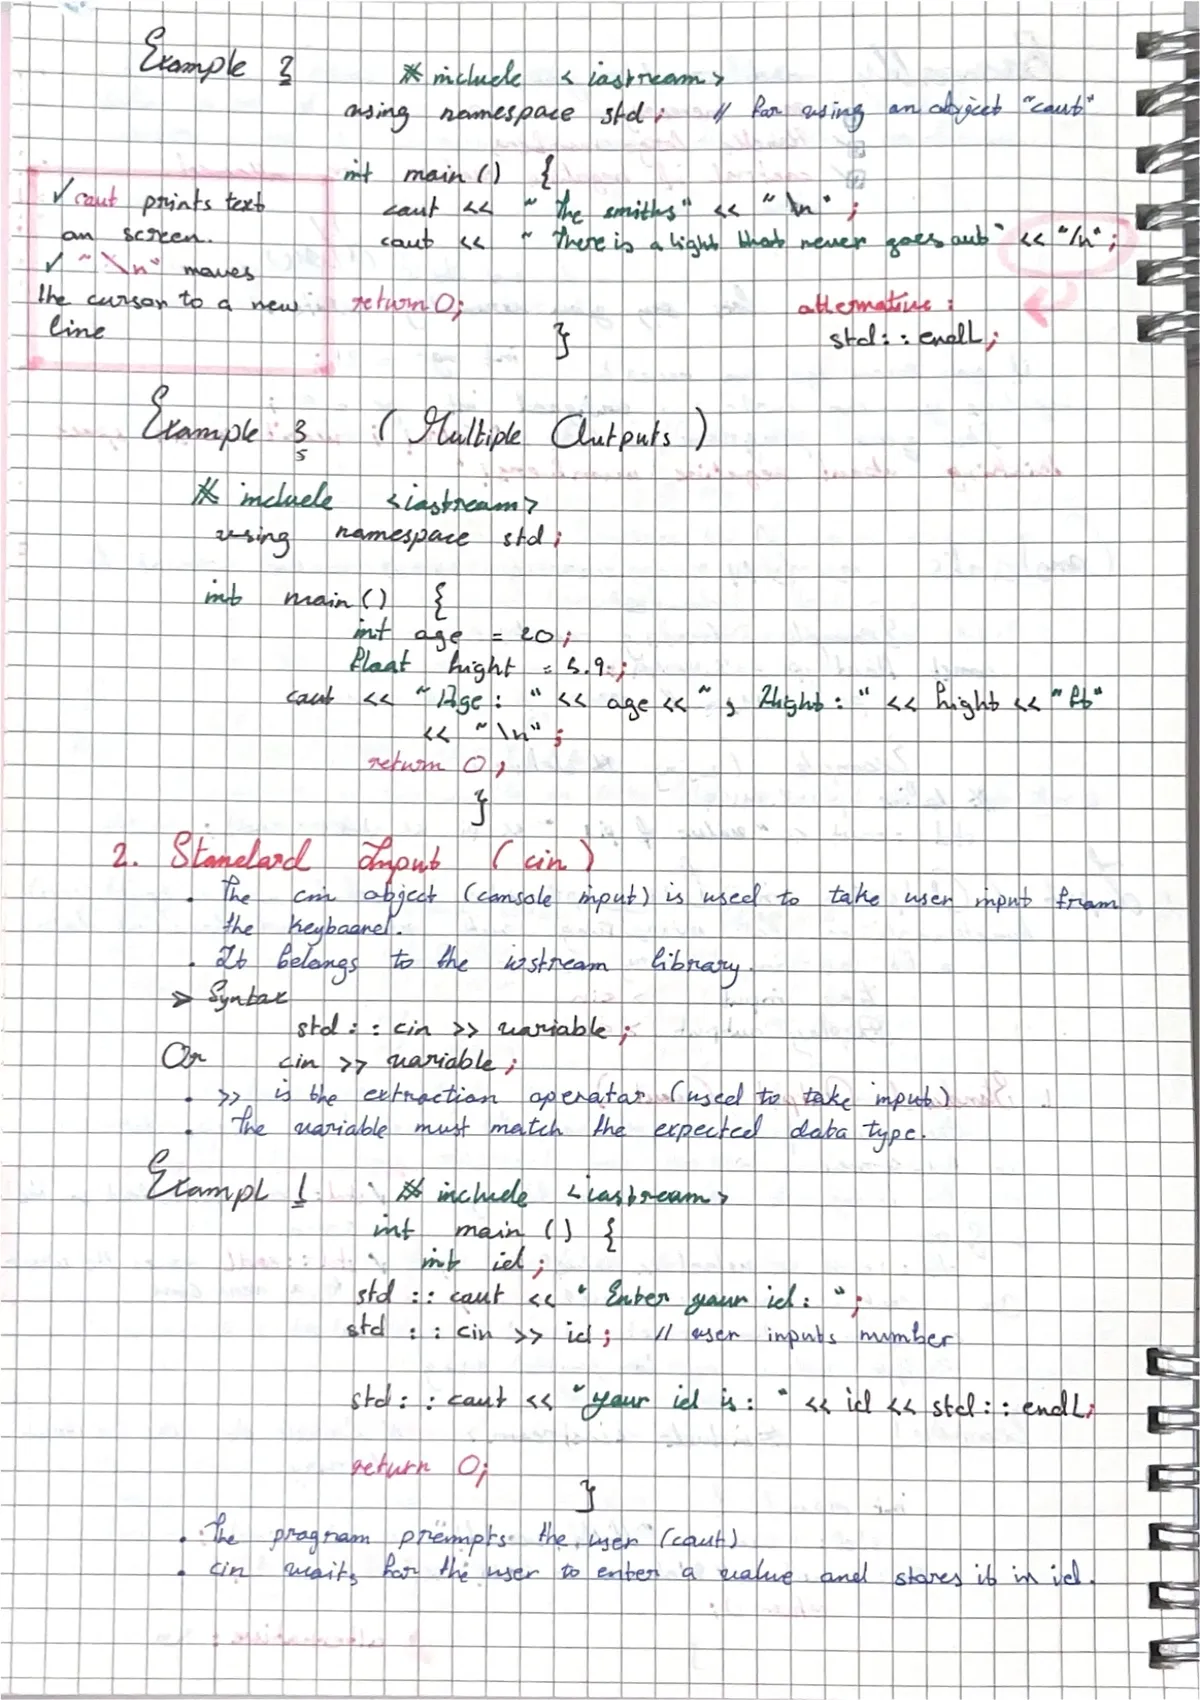 Example 2
# include <iostream>
using namespace std; // for using an object "cout"
int main () {
cout << "The smiths" << "\n";
cout << "There is a light that never goes out" << "/n";
return 0;
}
alternative :
std: : endL;
✓ cout prints text
on screen.
✓ "\n" moves
the cursor to a new
line
Example 3 (Multiple Outputs)
# include <iostream>
using namespace std;
int main () {
int age = 20;
float hight = 5.9;
cout << "Age : " << age << ", Hight : " << hight << "ft"
<< "\n";
return 0;
}
2. Standard Input (cin)
• The cin object (console input) is used to take user input from
the keyboard.
• It belongs to the iostream library.
➢ Syntax
std: : cin >> variable;
Or cin >> variable;
• >> is the extraction operator (used to take input)
• The variable must match the expected data type.
Exampl 1 # include <iostream>
int main () {
int id;
std :: cout << "Enter your id: ";
std : : cin >> id; // user inputs number
std: : cout << "your id is: " << id << std: : endL;
return 0;
}
• The program prempts the user (cout)
• cin waits for the user to enter a value and stores it in id.